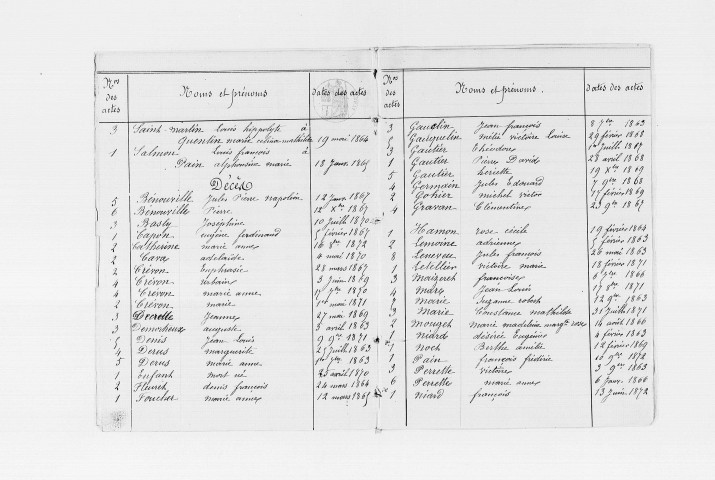 Nos des actes
Noms et prénoms
dates des actes
3 Saint-martin louis hippolyte à
Quentin marie celina mathilde 19 mai 1864
1 Salmon louis francois à
Pain alphonsine marie 18 Janv. 1865
Décès
5 Bénouville Jules Pierre napoléon 12 Janv. 1867
6 Bénouville Pierre 12 Xbre 1867
3 Basly Joséphine 10 Juillt 1870
1 Capon eugène ferdinand 5 févier 1867
2 Catherine marie anne 16 8bre 1872
2 Cava adelaide 4 mai 1870
2 Crevon Euphrasie 28 mars 1867
4 Crevon urbain 3 Juin 1869
4 Crevon marie anne 17 1870
2 Crevon marie 1er mai 1871
3 Decrette Jeanne 27 mai 1869
3 Demorheux auguste 3 avril 1863
5 Denis Jean Louis 9 9bre 1871
4 Derus marguerite 25 Juillt 1863
5 Derus marie anne 1863
1 Enfant mort né 25 avril 1870
2 Fleurch denis francois 24 mars 1864
1 Foucher marie anne 12 mars 1865
Nos des actes
Noms et prénoms.
dates des actes
3 Gaudin Jean francois 8 7bre 1863
5 Gauquelin Victoire Louise 29 févier 1868
3 Gautier Théodore 1er Juillt 1867
1 Gautier Pierre David 28 avril 1868
5 Gautier 19 Xbre 1869
4 Germain Jules Edouard 7 9bre 1868
2 Gohier michel victor 17 févier 1869
4 Gravan Clémentine 23 9bre 1867
1 Hamon rose cécile 19 févier 1864
2 Lemoine adrienne 5 févier 1863
8 Leneveu Jules francois 26 mai 1863
1 Letellier victoire marie 18 févier 1871
3 Maizeret francoise 6 1866
4 Jean Louis 17 8bre 1871
7 Marie Suzanne robert 12 9bre 1863
3 Marie Constance mathilde 31 Juillt 1871
2 Mouget marie madeleine margte rose 14 août 1866
1 niard désirée Eugénie 4 févier 1863
1 noch Berthe amélie 12 févier 1869
2 Pain francois frédéric 10 9bre 1872
3 Perrette victoire 3 9bre 1863
6 Perrette marie anne 6 Janv. 1866
1 niard francois 13 Juin 1872